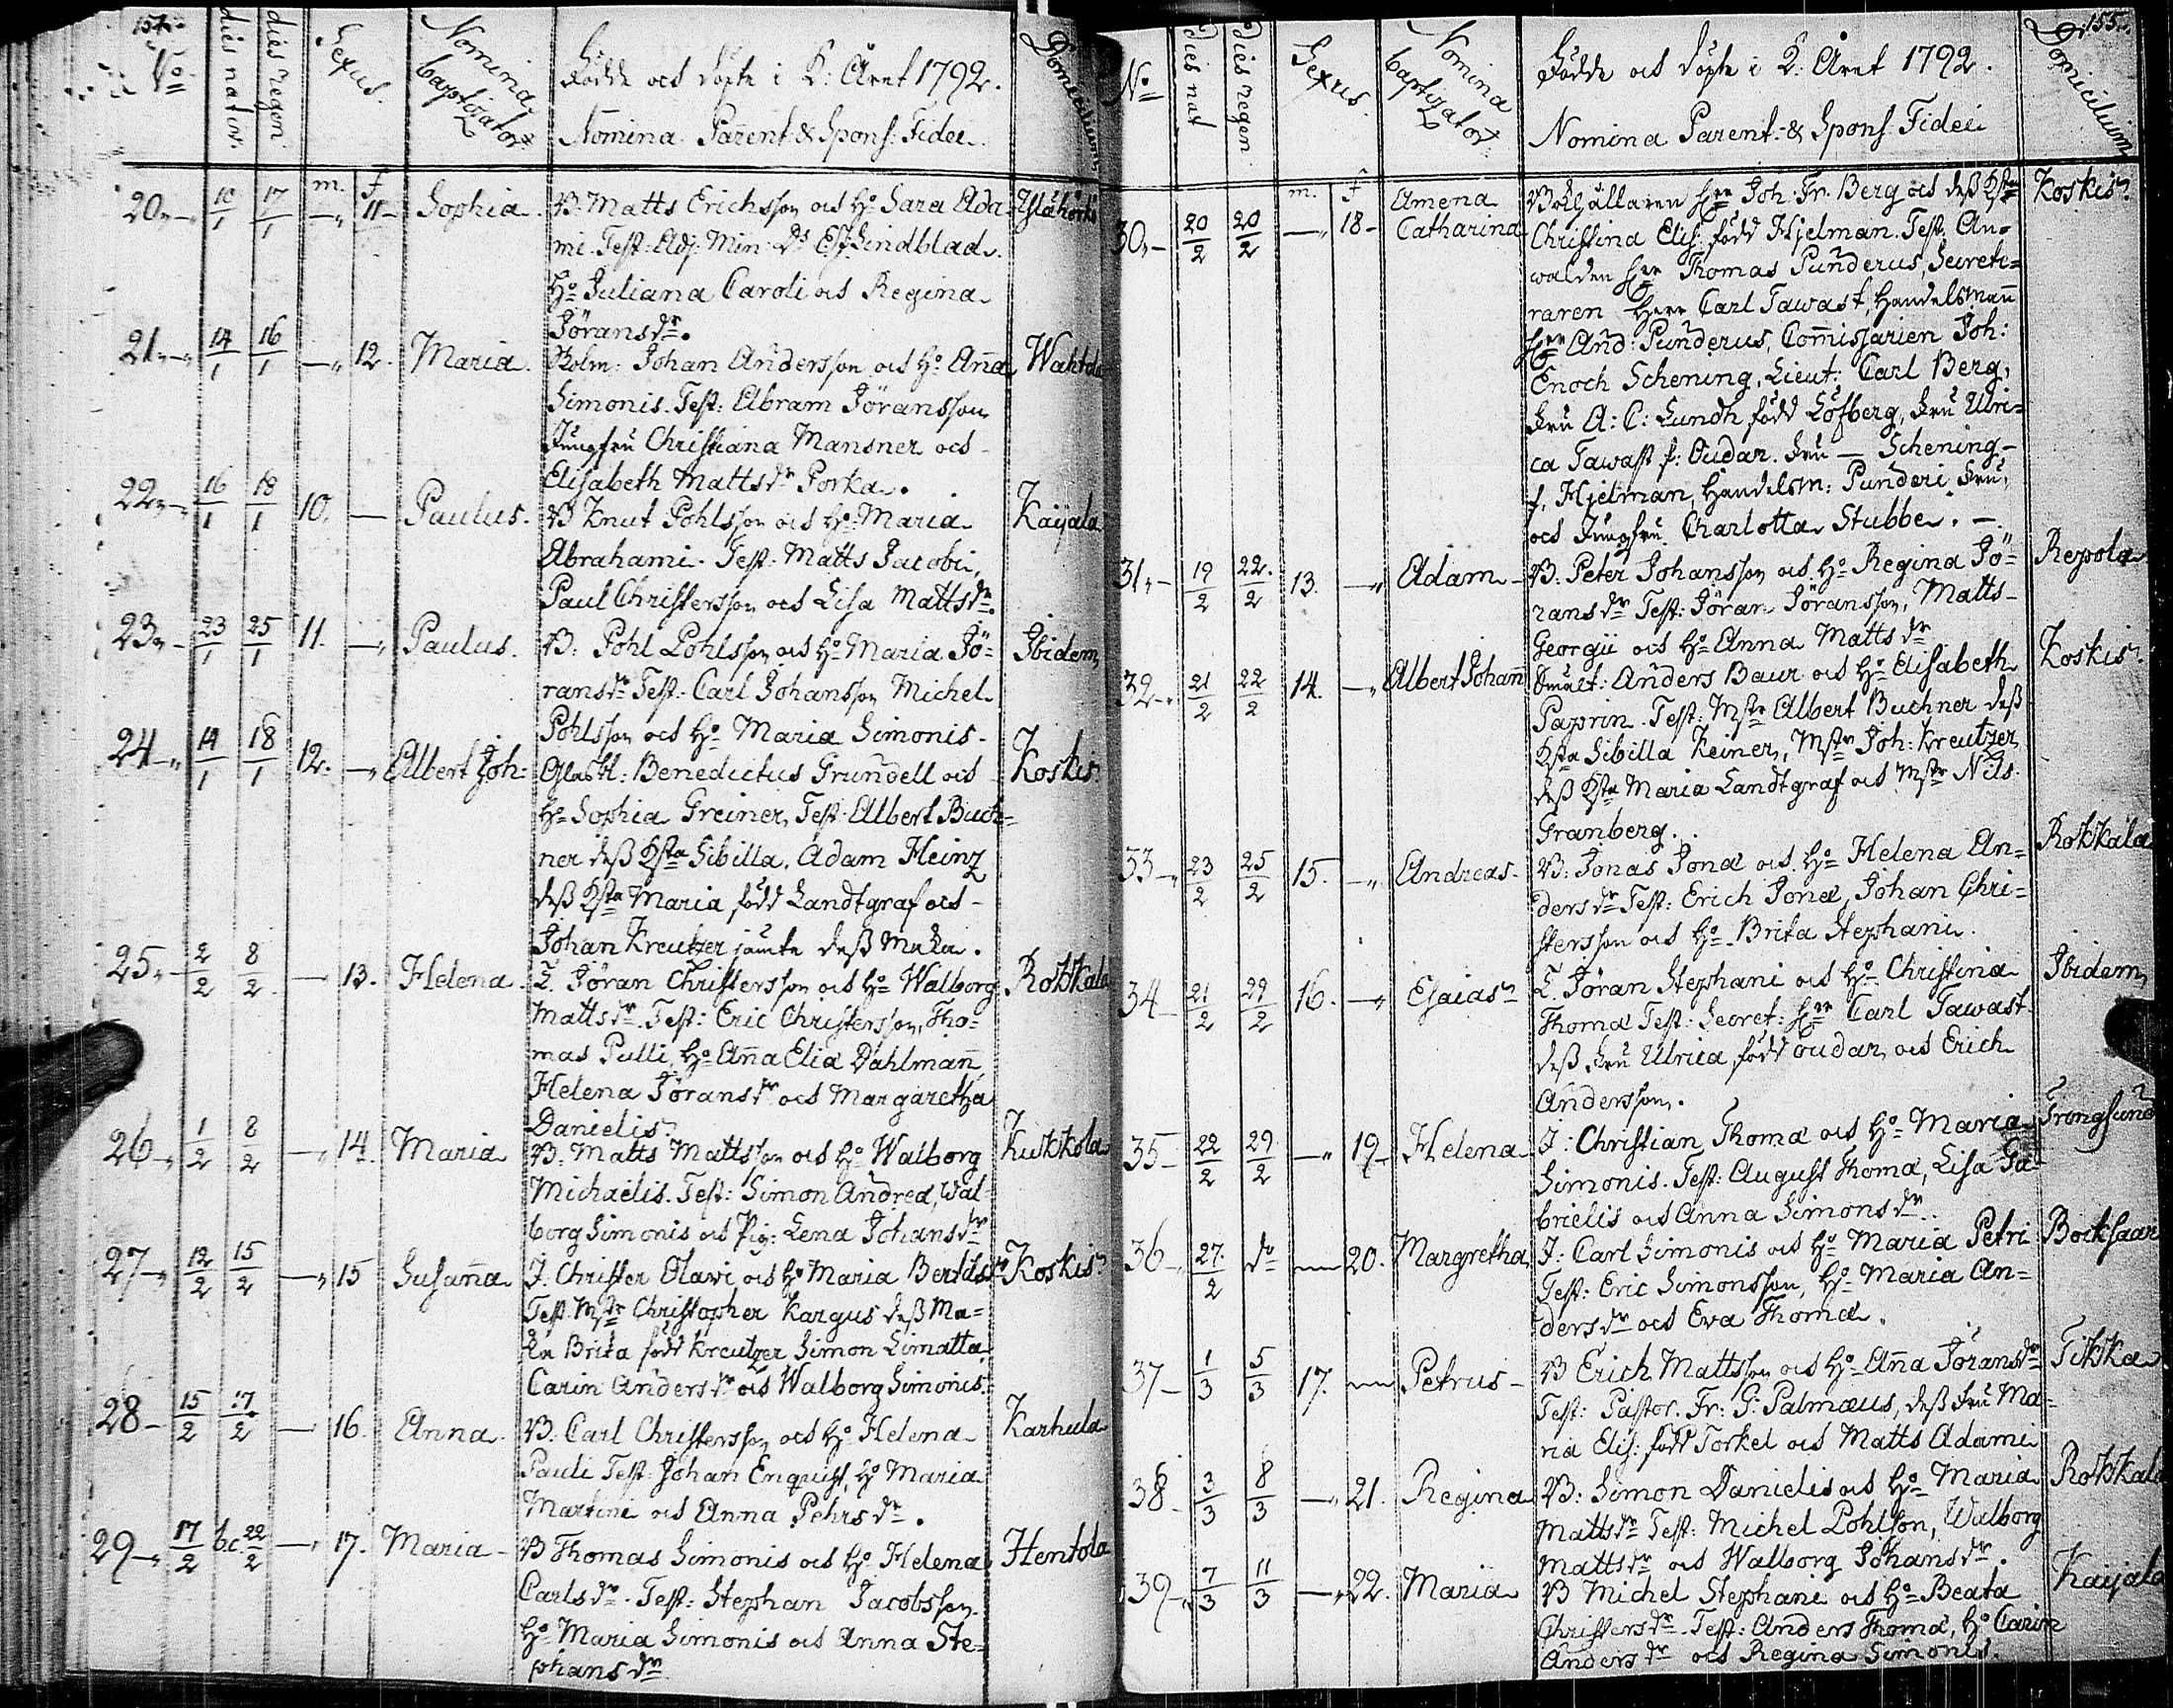 154.
No
dies nativ.
dies regen.
Sexus.
Nomina baptizator
Födde och döpte i K: Året 1792.
Nomina Parent: & Spons: Fidei.
Domicilium
m. f
20 10/1 17/1 — 11 Sophia. B. Matts Erichsson och Ho Sara Ada-
mi. Test: Adj: Min: Ds Lindblad.
Ho Juliana Caroli och Regina
Jöransdr.
21 14/1 16/1 — 12. Maria. Johan Andersson och Ho Anna Wahtola
Simonis. Test: Abram Jöransson
Jungfru Christiana Mansner och
Elisabeth Mattsdr Porka.
22 16/1 18/1 10. — Paulus. B Knut Pohlsson och Ho Maria Kaijala
Abrahami. Test: Matts Jacobi,
Paul Christersson och Lisa Mattsdr.
23 23/1 25/1 11. — Paulus. B: Pohl Pohlsson och Ho Maria Jö- Ibidem
ransdr Test: Carl Johansson Michel
Pohlsson och Ho Maria Simonis
24 14/1 18/1 12. — Albert Joh: Glasbl: Benedictus Grundell och Koskis
Ho Sophia Greiner, Test: Albert Buch-
ner dess Hsta Sibilla. Adam Heinz
dess Hsta Maria född Landtgraf och
Johan Kreutzer jämte dess Maka.
25 2/2 8/2 — 13. Helena. T. Jöran Christersson och Ho Walborg Rokkala
Mattsdr. Test: Eric Christersson, Tho-
mas Pulli, Ho Anna Eliæ Dahlmann
Helena Jöransdr och Margaretha
Danielis
26 1/2 8/2 — 14. Maria B. Matts Mattsson och Ho Walborg Kukkola
Michaelis. Test: Simon Andreæ, Wal-
borg Simonis och Pig: Lena Johansdr
27 12/2 15/2 — 15 Susanna J. Christer Olavi och Ho Maria Bertilsdr Koskis
Test: Mstr Christopher Kargus dess Ma-
ka Brita född Kreutzer Simon Limatta
Carin Andersdr och Walborg Simonis.
28 15/2 17/2 — 16. Anna. B. Carl Christersson och Ho Helena Karhula
Pauli Test: Johan Enquist, Ho Maria
Martini och Anna Pehrsdr.
29 17/2 bc 22/2 — 17. Maria B Thomas Simonis och Ho Helena Hentola
Carlsdr. Test: Stephan Jacobsson.
Ho Maria Simonis och Anna Ste-
phansdr
155.
No
dies nat
dies regen
Sexus
Nomina baptizator.
Födde och döpte i K: Året 1792.
Nomina Parent: & Spons: Fidei
Domicilium
m. f
30 20/2 20/2 — 18 Amena Catharina Herr Joh: Fr. Berg och dess Koskis
Christina Elis: född Hjelman. Test:
walden Herr Thomas Punderus, Secrete-
raren Herr Carl Tawast, Handelsmann
Herr And: Punderus, Commissarien Joh:
Enoch Schening, Lieut: Carl Berg,
Fru A: C: Lundh född Löfberg, Fru Ulri-
ca Tawast f: Oudar. Fru — Schening
f. Hjelman, Handelsm: Punderi Fru,
och Jungfru Charlotta Stubbe. —
31 19/2 22/2 13. — Adam B. Peter Johansson och Ho Regina Jö- Repola
ransdr Test: Jöran Jöransson, Matts
Georgii och Ho Anna Mattsdr
32 21/2 22/2 14. — Albert Johann Smält: Anders Baur och Ho Elisabeth Koskis
Paprin. Test: Mstr Albert Buchner dess
Hsta Sibilla Keiner, Mstr Joh: Kreutzer
dess Hsta Maria Landtgraf och Mstr Nils
Granberg.
33 23/2 25/2 15. — Andreas B: Jonas Jonæ och Ho Helena An- Rokkala
dersdr Test: Erich Jonæ, Johan Chri-
stersson och Ho Brita Stephani.
34 21/2 29/2 16. — Esaias T. Jöran Stephani och Ho Christina Ibidem
Thomæ Test: Secret: Herr Carl Tawast
dess Fru Ulrica född Oudar, och Erich
Andersson.
35 22/2 29/2 — 19 Helena J: Christian Thomæ och Ho Maria Trongsund
Simonis. Test: August Thomæ, Lisa Ga-
brielis och Anna Simonsdr.
36 27/2 do — 20. Margretha J: Carl Simonis och Ho Maria Petri Bocksaari
Test: Eric Simonsson, Ho Maria An-
dersdr och Eva Thomæ.
37 1/3 5/3 17. — Petrus B Erich Mattsson och Ho Anna Jöransdr Tikka
Test: Pastor. Fr: G: Palmæus, dess Fru Ma-
ria Elis: född Torkel och Matts Adami
38 3/3 8/3 — 21. Regina B: Simon Danielis och Ho Maria Rokkala
Mattsdr Test: Michel Pohlson, Walborg
Mattsdr och Walborg Johansdr.
39 7/3 11/3 — 22. Maria B Michel Stephani och Ho Beata Kaijala
Christersdr. Test: Anders Thomæ, Ho Carin
Andersdr och Regina Simonis.